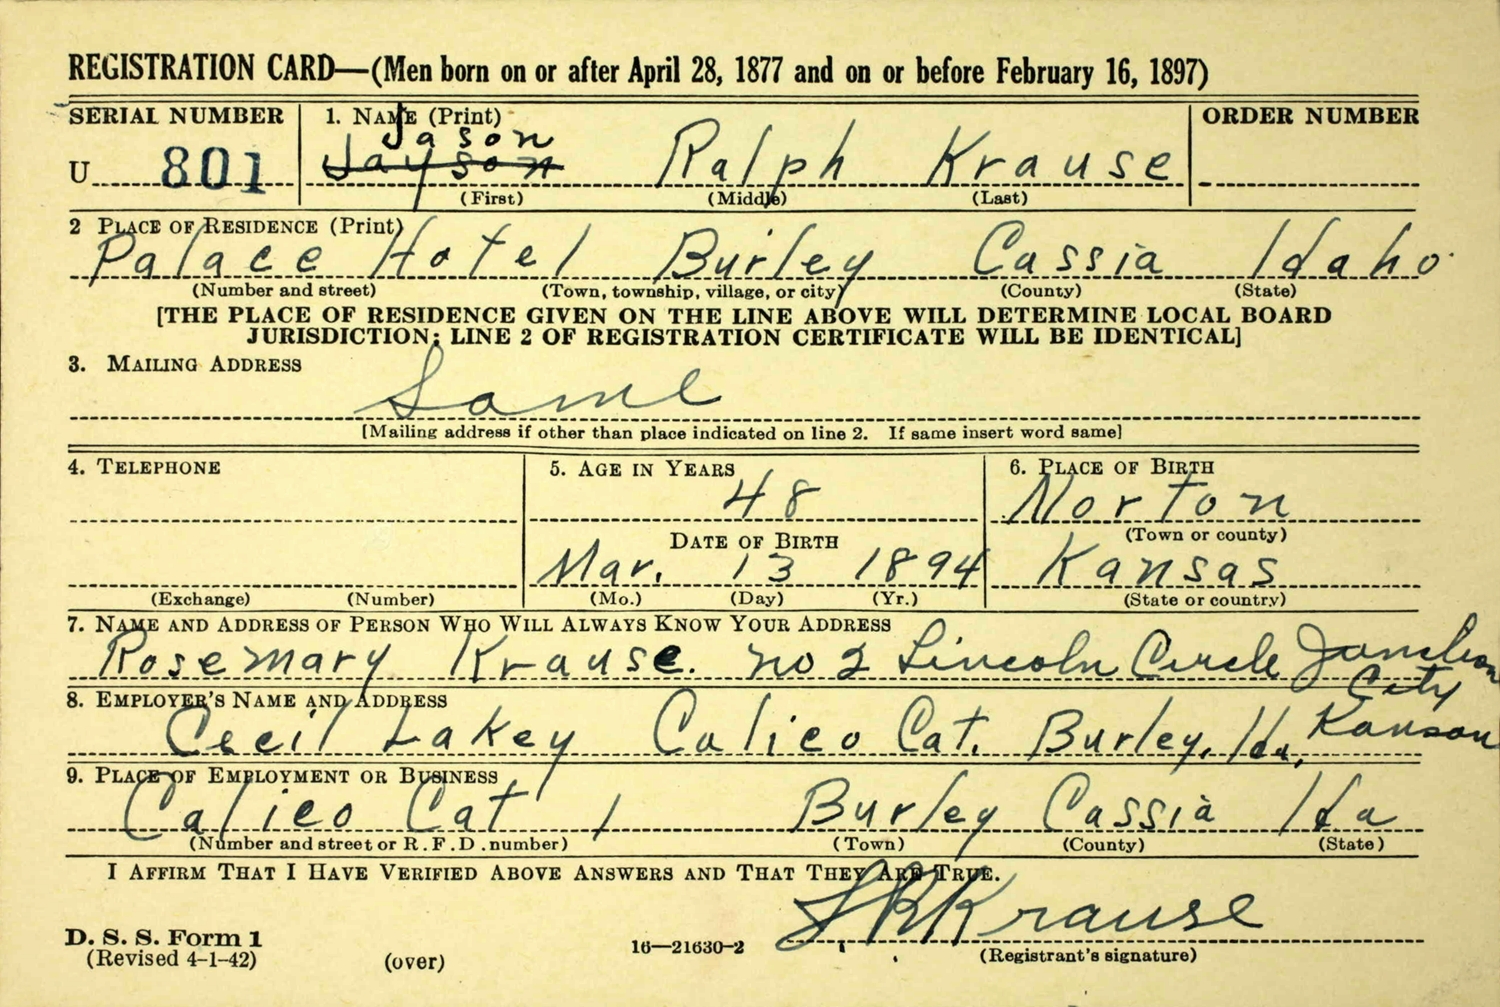 REGISTRATION CARD—(Men born on or after April 28, 1877 and on or before February 16, 1897)
SERIAL NUMBER 1. NAME (Print) ORDER NUMBER
Jason
U 801 Jayson Ralph Krause
(First) (Middle) (Last)
2 PLACE OF RESIDENCE (Print)
Palace Hotel Burley Cassia Idaho
(Number and street) (Town, township, village, or city) (County) (State)
[THE PLACE OF RESIDENCE GIVEN ON THE LINE ABOVE WILL DETERMINE LOCAL BOARD
JURISDICTION; LINE 2 OF REGISTRATION CERTIFICATE WILL BE IDENTICAL]
3. MAILING ADDRESS
Same
[Mailing address if other than place indicated on line 2. If same insert word same]
4. TELEPHONE 5. AGE IN YEARS 6. PLACE OF BIRTH
48 Norton
DATE OF BIRTH (Town or county)
Mar. 13 1894 Kansas
(Exchange) (Number) (Mo.) (Day) (Yr.) (State or country)
7. NAME AND ADDRESS OF PERSON WHO WILL ALWAYS KNOW YOUR ADDRESS
Rosemary Krause. no 2 Lincoln Circle Junction
City
8. EMPLOYER'S NAME AND ADDRESS
Cecil Lakey Calico Cat. Burley, Ida, Kansan
9. PLACE OF EMPLOYMENT OR BUSINESS
Calico Cat , Burley Cassia Ida
(Number and street or R. F. D. number) (Town) (County) (State)
I AFFIRM THAT I HAVE VERIFIED ABOVE ANSWERS AND THAT THEY ARE TRUE.
J R Krause
D. S. S. Form 1
(Revised 4-1-42) (over) 16—21630-2 (Registrant's signature)